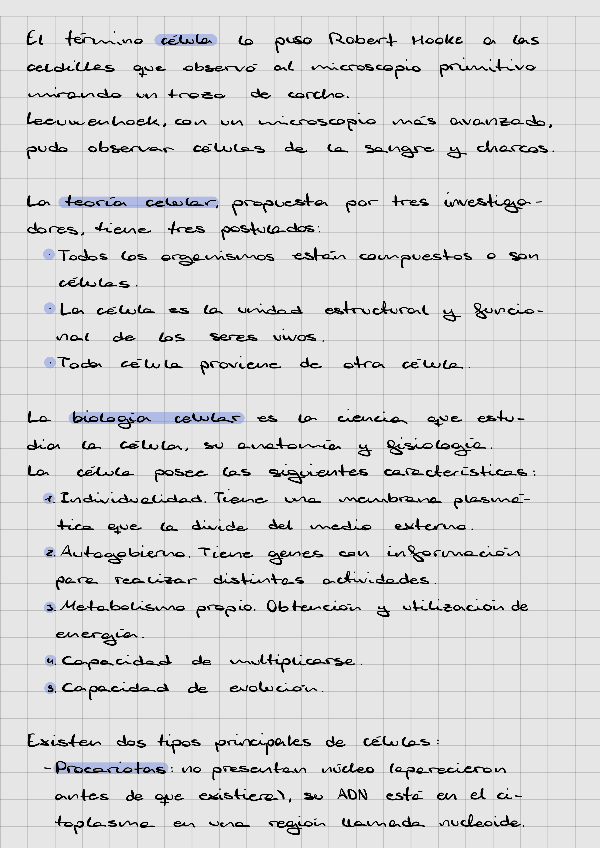 El término célula lo puso Robert Hooke a las
celdillas que observó al microscopio primitivo
mirando un trozo de corcho.
Leeuwenhoek, con un microscopio más avanzado,
pudo observar células de la sangre y charcos.
La teoría celular, propuesta por tres investiga-
dores, tiene tres postulados:
· Todos los organismos están compuestos o son
células.
· La célula es la unidad estructural y funcio-
nal de los seres vivos.
· Toda célula proviene de otra célula.
La biología celular es la ciencia que estu-
dia la célula, su anatomía y fisiología.
La célula posee las siguientes características:
1. Individualidad. Tiene una membrana plasmá-
tica que la divide del medio externo.
2. Autogobierno. Tiene genes con información
para realizar distintas actividades.
3. Metabolismo propio. Obtención y utilización de
energía.
4. Capacidad de multiplicarse.
5. Capacidad de evolución.
Existen dos tipos principales de células:
- Procariotas: no presentan núcleo (aparecieron
antes de que existiera), su ADN está en el ci-
toplasma en una región llamada nucleoide.